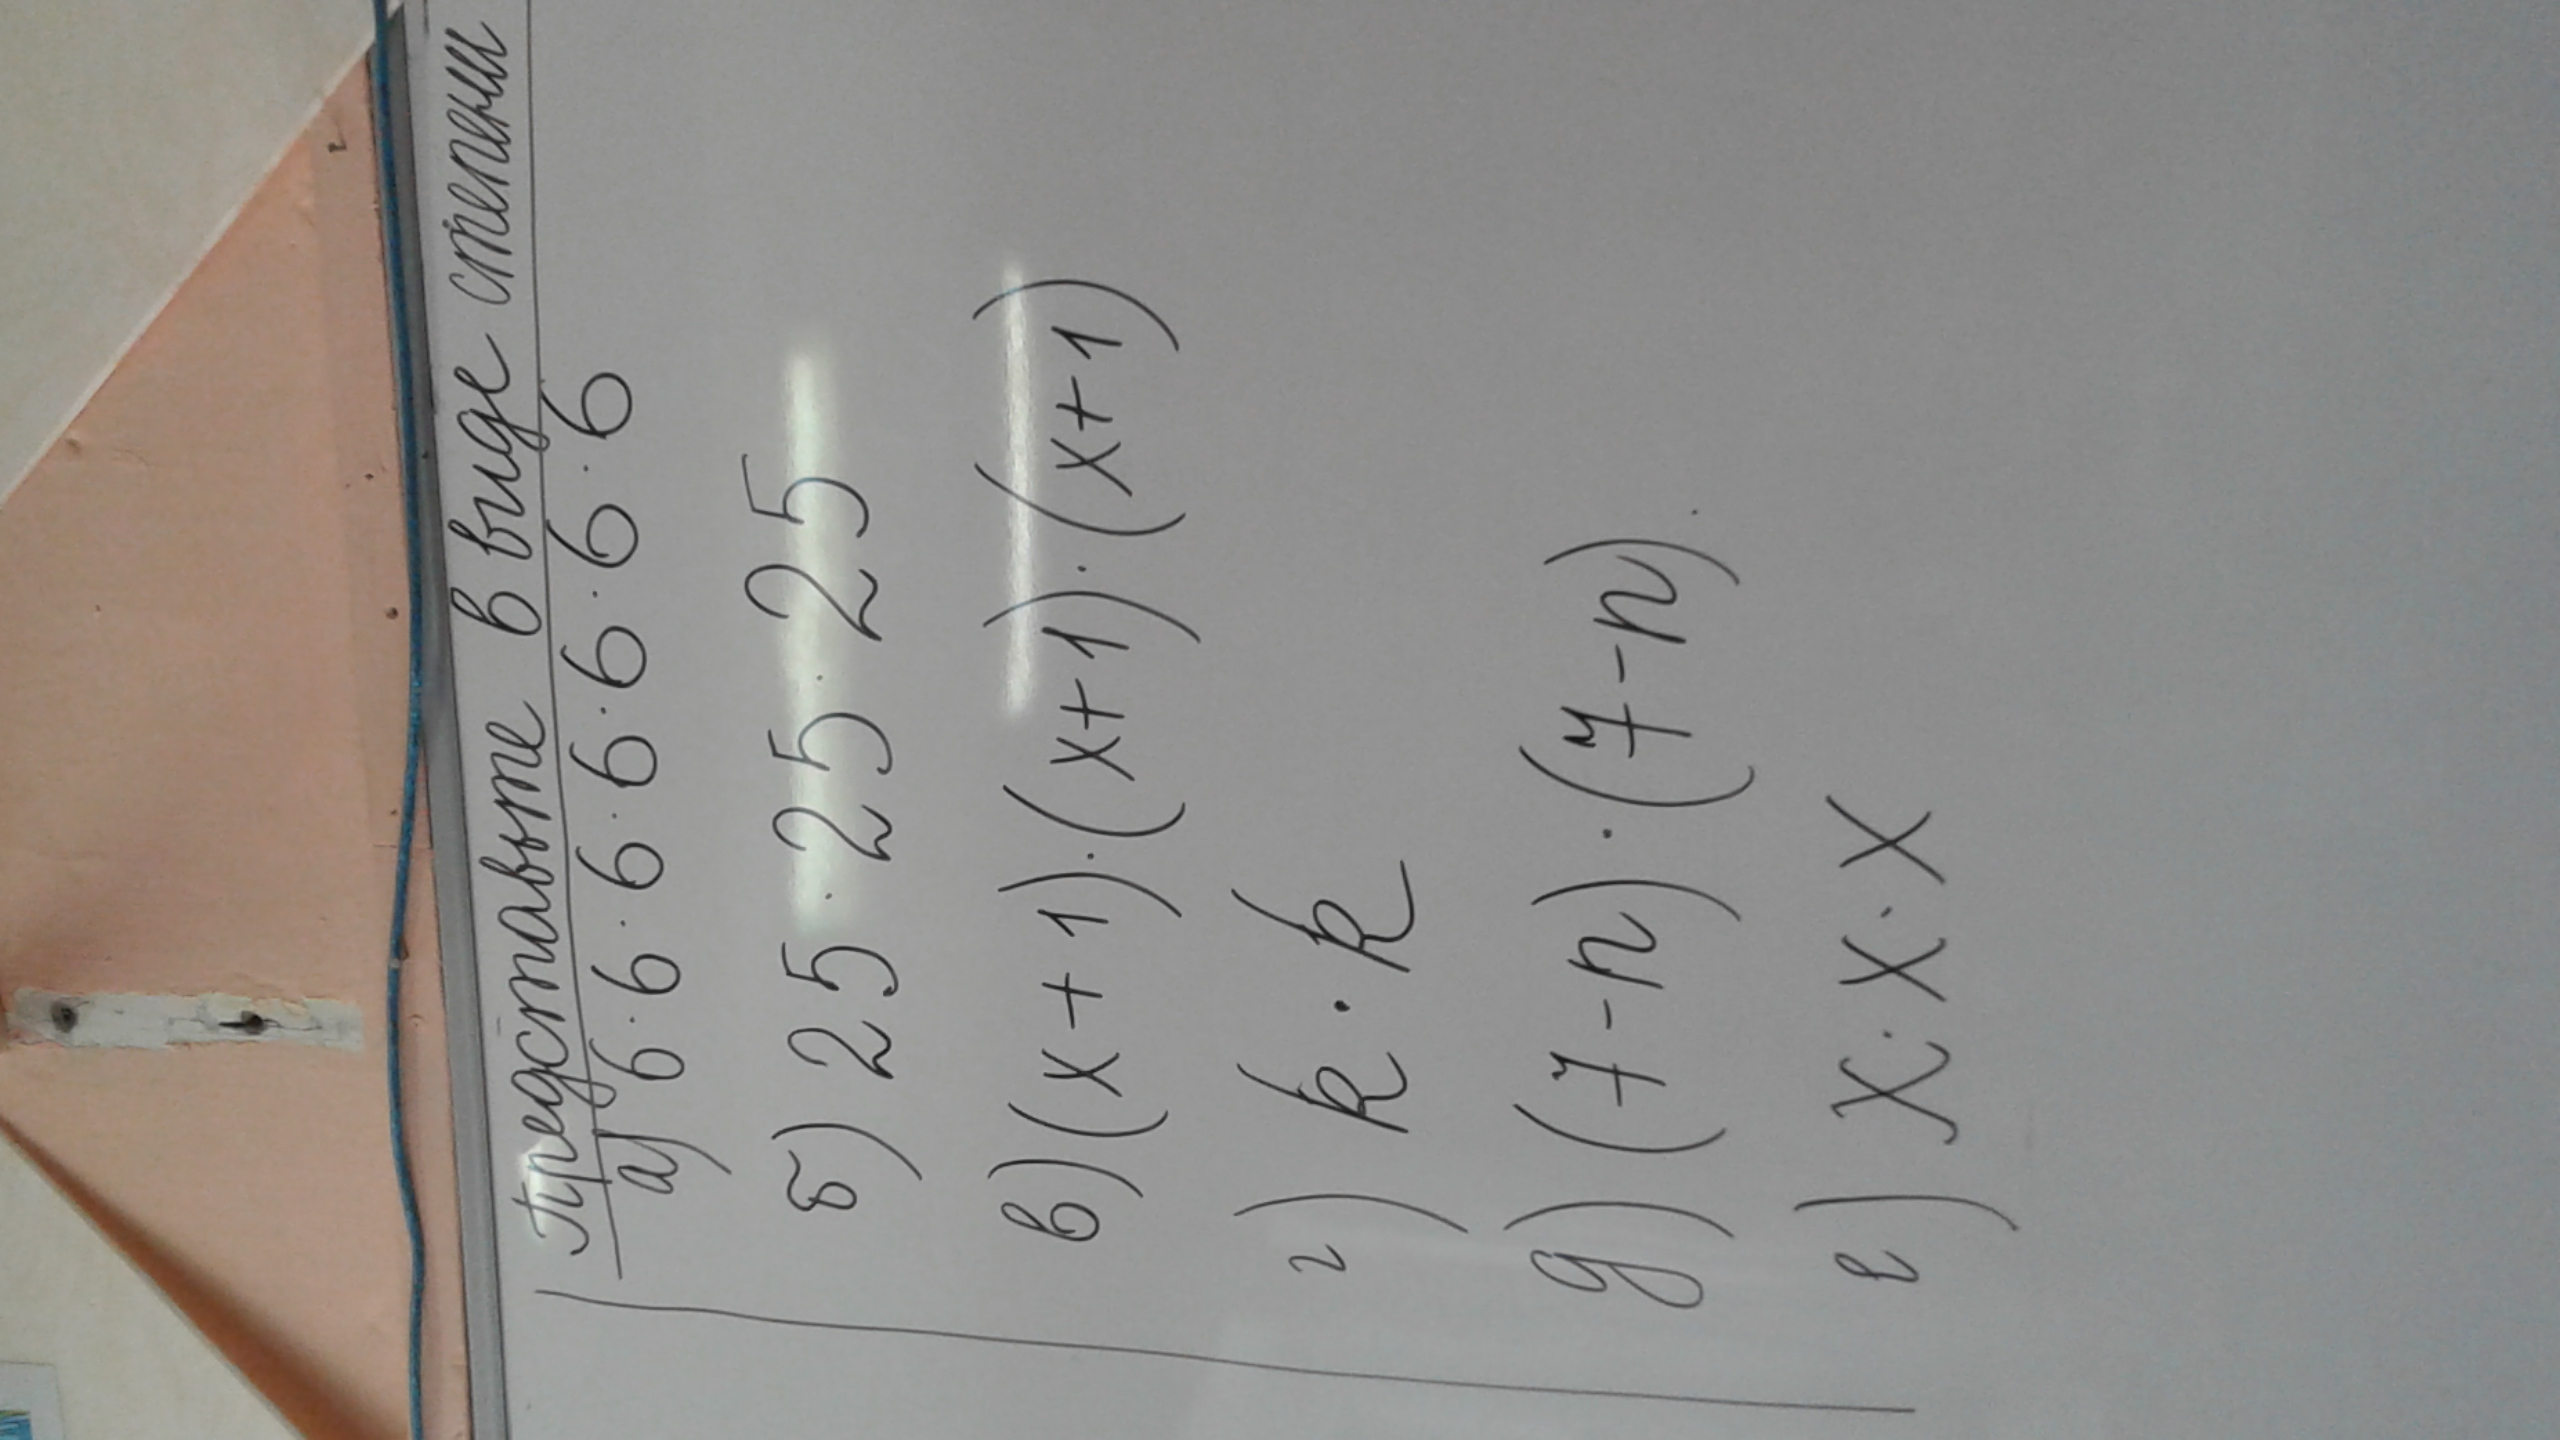 Представьте в виде степени
а) 6·6·6·6·6·6·6
б) 25·25·25
в) (x+1)·(x+1)·(x+1)
г) k·k
д) (7-n)·(7-n).
е) x·x·x